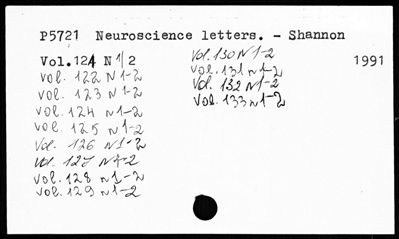 P5721 Neuroscience letters. - Shannon
Vol.121 N 1/2
1991
vol. 122 N 1-2
vol. 123 N 1-2
vol. 124 N 1-2
vol. 125 N 1-2
Vol. 126 N 1-2
vol. 127 N 1-2
vol. 128 N 1-2
vol. 129 N 1-2
Vol. 130 N 1-2
vol. 131 N 1-2
vol. 132 N 1-2
vol. 133 N 1-2